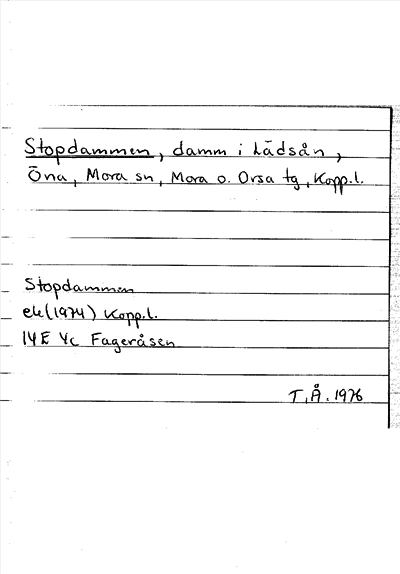 Stopdammen, damm i Lädsån,
Öna, Mora sn, Mora o. Orsa tg, Kopp.l.
Stopdammen
ek(1974) Kopp.l.
14E 4c Fageråsen
T.Å. 1976